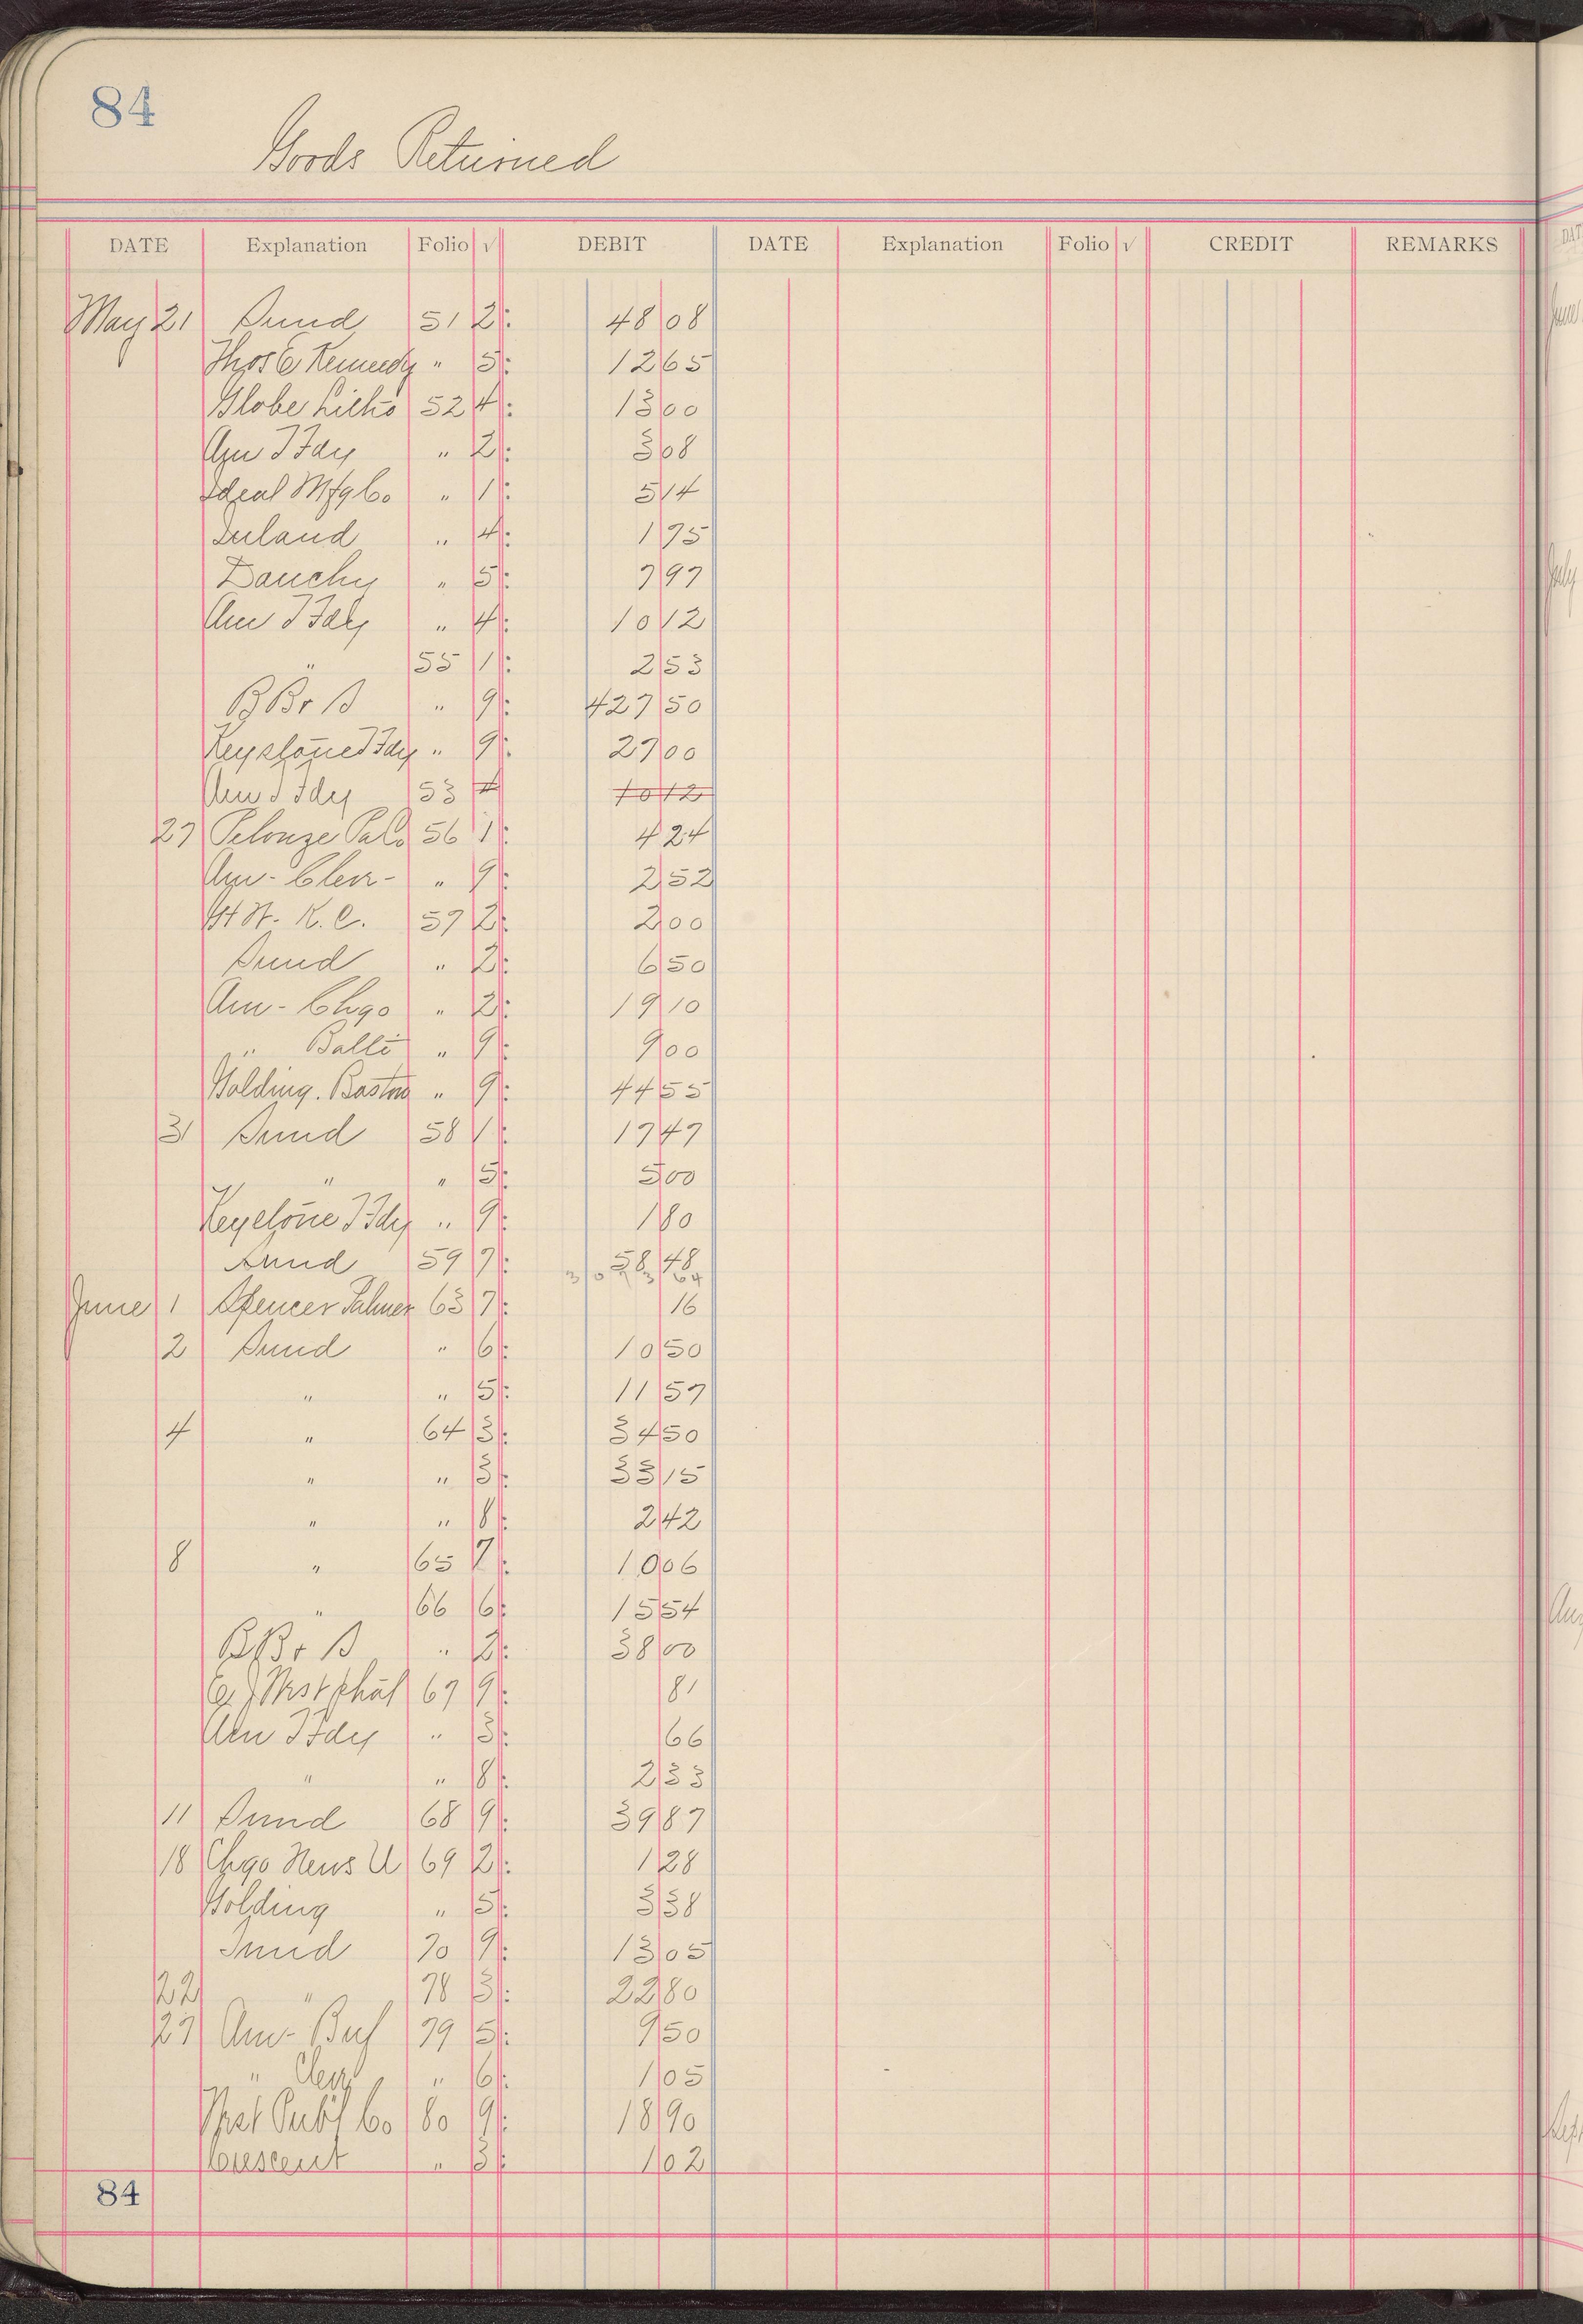 84
Goods Returned
DATE Explanation Folio √ DEBIT DATE Explanation Folio √ CREDIT REMARKS
May 21 Sund 51 2 48 08
Thos E Kennedy " 5 12 65
Globe Litho 52 4 13 00
Am T Fdy " 2 3 08
Ideal Mfg Co " 1 5 14
Inland " 4 1 75
Dauchy " 5 7 97
Am T Fdy " 4 10 12
" 55 1 2 53
BBr & S " 9 427 50
Keystone T Fdy " 9 27 00
Am T Fdy 53 4 10 12
27 Pelouze Pa 56 1 4 24
Am - Clev - " 9 2 52
H H. K. C. 57 2 2 00
Sund " 2 6 50
Am - Chgo " 2 19 10
" Balto " 9 9 00
Golding. Boston " 9 44 55
31 Sund 58 1 17 47
" " 5 5 00
Keystone T Fdy " 9 1 80
Sund 59 7 58 48
June 1 Spencer Palmer 63 7 16
2 Sund " 6 10 50
" " 5 11 57
4 " 64 3 34 50
" " 3 33 15
" " 8 2 42
8 " 65 7 10 06
" 66 6 15 54
BBr & S " 2 38 00
Westphal 67 9 81
Am T Fdy " 3 66
" " 8 2 33
11 Sund 68 9 39 87
18 Chgo News U 69 2 1 28
Golding " 5 3 38
Sund 70 9 13 05
22 " 78 3 22 80
27 Am - Buf 79 5 9 50
" Clev " 6 1 05
West Publ Co 80 9 18 90
Crescent " 3 1 02
84